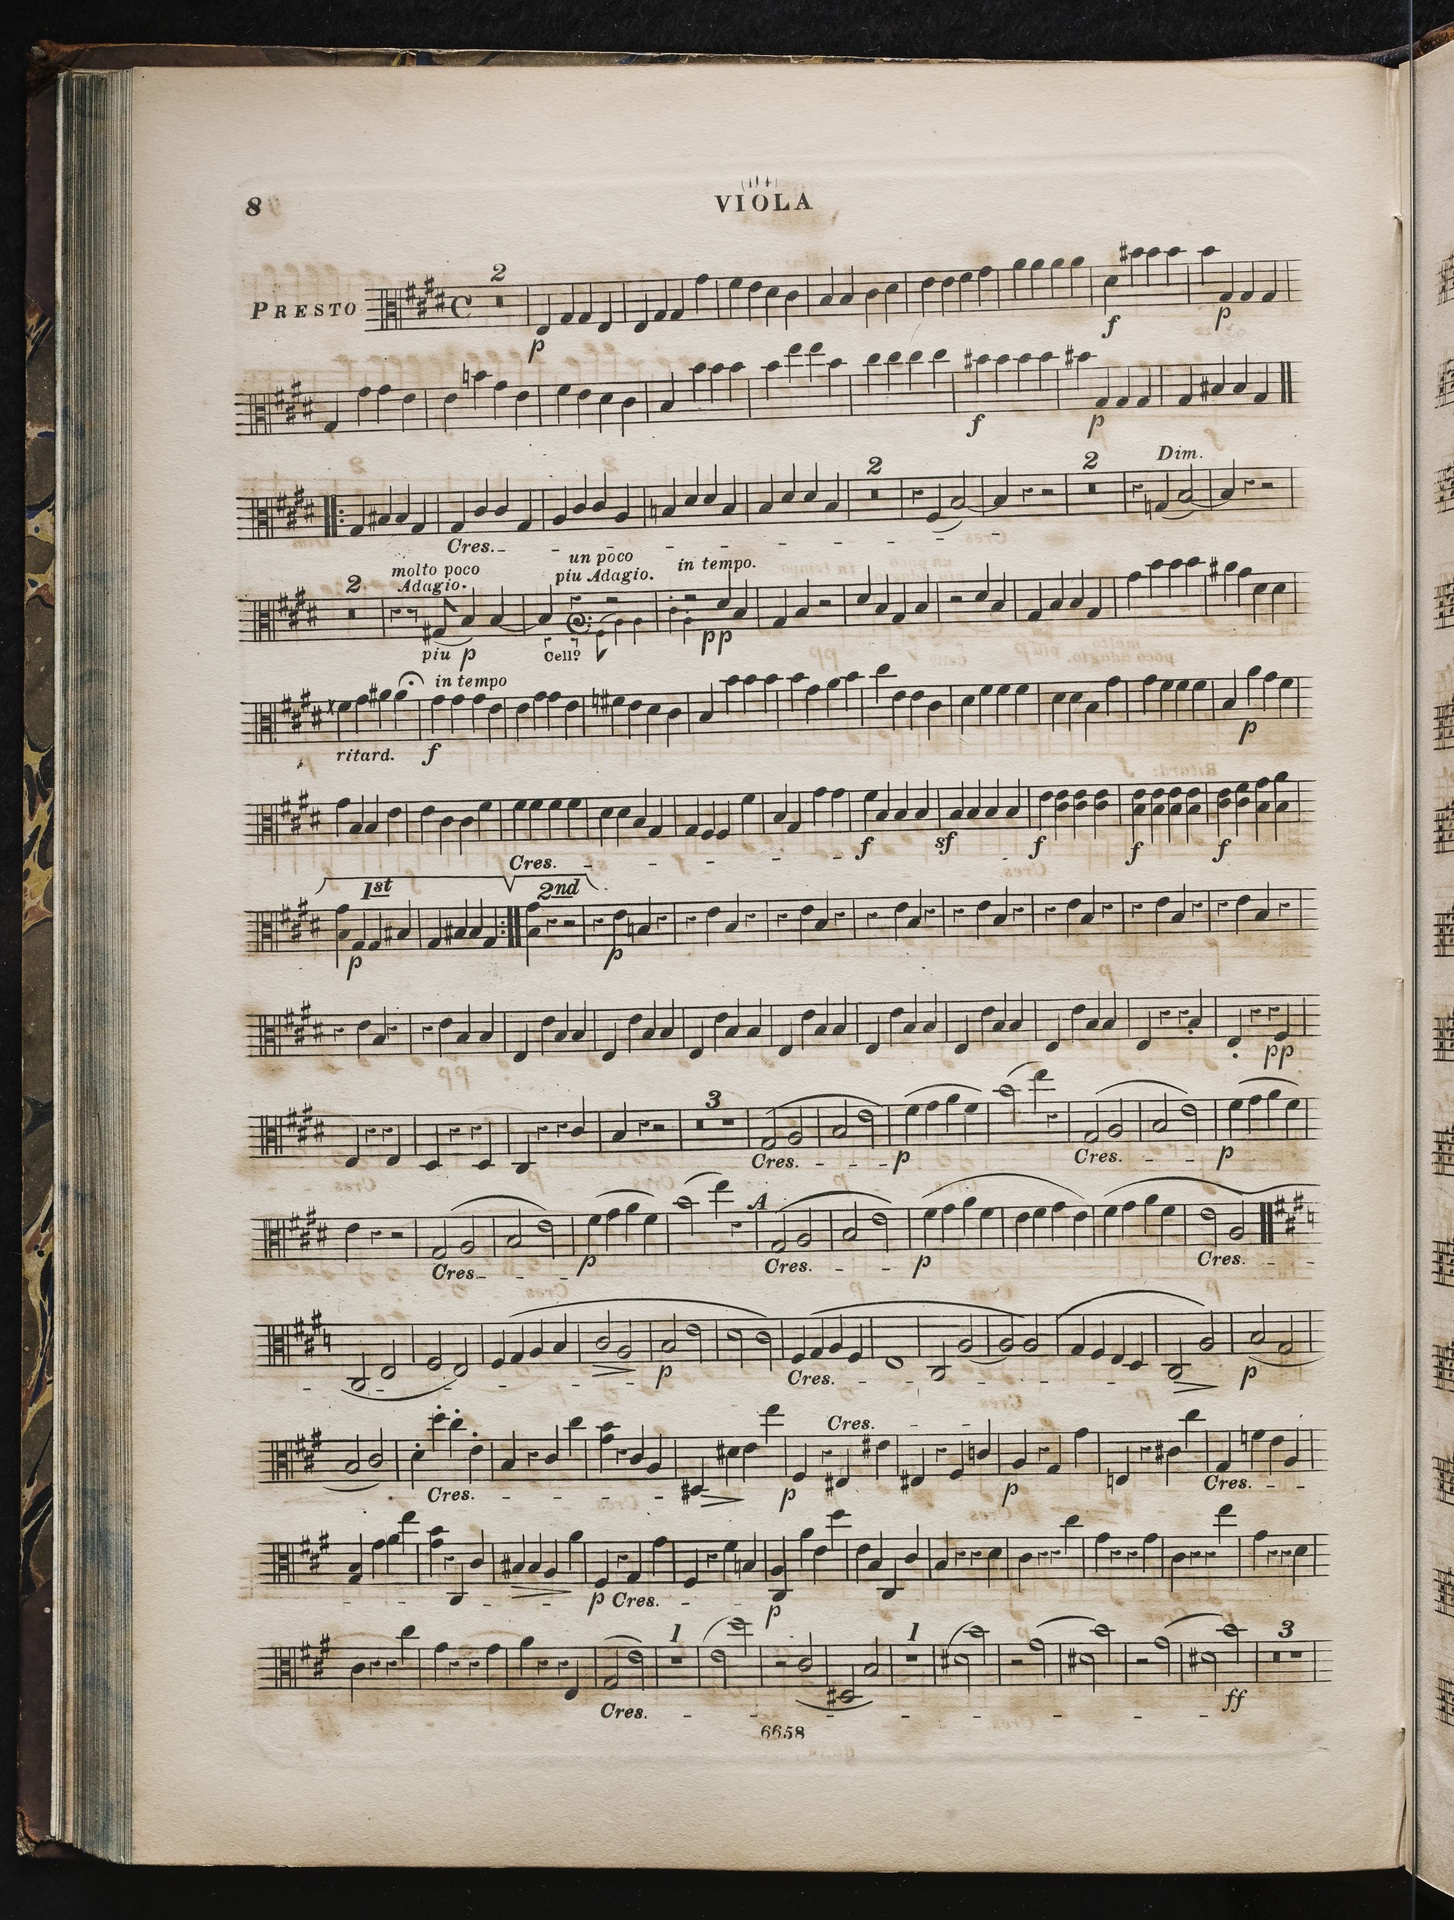 8
VIOLA
PRESTO
2
p
f
p
f
p
2
2
Dim.
Cres.
2
molto poco
Adagio.
un poco
piu Adagio.
in tempo.
piu p
Cello
pp
in tempo
ritard.
f
p
Cres.
f
sf
f
f
f
1st
2nd
p
p
pp
3
Cres.
p
Cres.
p
A
Cres.
p
Cres.
p
Cres.
p
Cres.
p
Cres.
Cres.
p
p
Cres.
p Cres.
p
1
1
3
Cres.
ff
6658